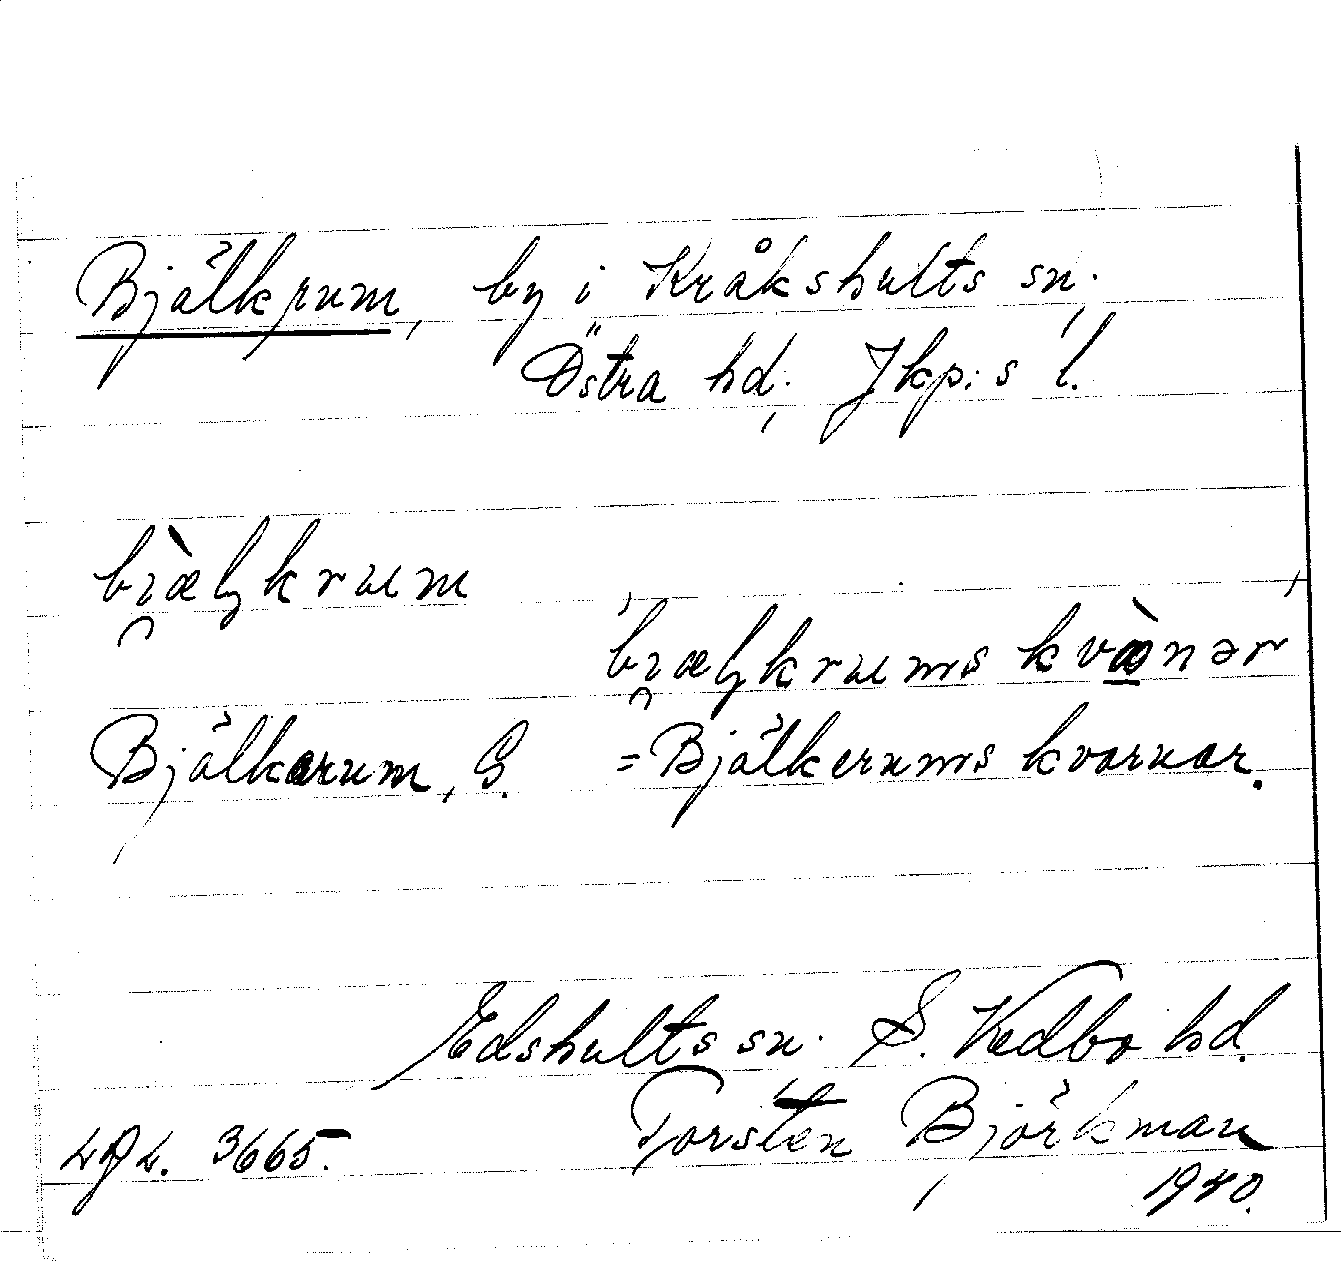 Bjälkrum, by i Kråkshults sn.
Östra hd. Jkp:s l.
bi̯æ̀lkrum
bi̯ælkrums kvæ̀nər
Bjälkarum, G. = Bjälkerums kvarnar.
Edshults sn. S. Vedbo hd.
3665. Torsten Björkman
1940.